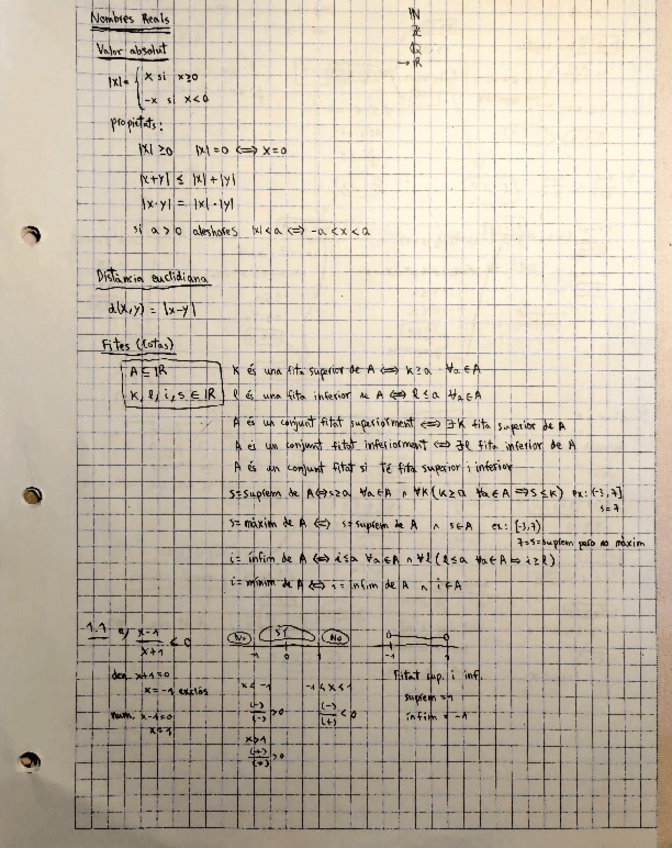 Nombres Reals
IN
Z
Q
→ IR
Valor absolut
|x|= { x si x≥0
-x si x<0
propietats:
|x| ≥0 |x|=0 ⟺ x=0
|x+y| ≤ |x|+|y|
|x·y| = |x|·|y|
si a>0 aleshores |x|<a ⟺ -a<x<a
Distància euclidiana
d(x,y) = |x-y|
Fites (Cotas)
A ⊆ IR
K, l, i, s ∈ IR
K és una fita superior de A ⟺ K≥a ∀a∈A
l és una fita inferior de A ⟺ l≤a ∀a∈A
A és un conjunt fitat superiorment ⟺ ∃K fita superior de A
A és un conjunt fitat inferiorment ⟺ ∃l fita inferior de A
A és un conjunt fitat si té fita superior i inferior
s=suprem de A⟺s≥a ∀a∈A ∧ ∀K(K≥a ∀a∈A ⟹s≤K) ex: (-3,7]
s=7
s=màxim de A ⟺ s=suprem de A ∧ s∈A ex: [-3,7)
7=s=suprem pero no màxim
i=ínfim de A ⟺ i≤a ∀a∈A ∧ ∀l(l≤a ∀a∈A ⟹ i≥l)
i=mínim de A ⟺ i=ínfim de A ∧ i∈A
1.1 a) x-1/x+1 < 0
No SÍ No
-1 0 1
-1 1
den x+1=0
x=-1 exclòs
num. x-1=0
x=1
x<-1 -1<x<1
(-)/(-) >0 (-)/(+) <0
x>1
(+)/(+) >0
Fitat sup. i inf.
suprem =1
ínfim = -1